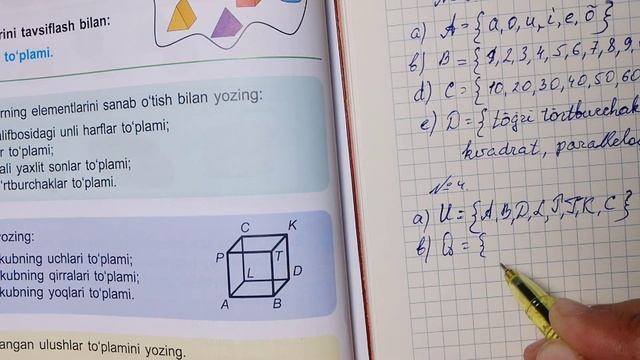 rini tavsiflash bilan:
to'plami.
rning elementlarini sanab o'tish bilan yozing:
alifbosidagi unli harflar to'plami;
r to'plami;
ali yaxlit sonlar to'plami;
'rtburchaklar to'plami.
yozing:
kubning uchlari to'plami;
kubning qirralari to'plami;
kubning yoqlari to'plami.
C K
P T
L D
A B
angan ulushlar to'plamini yozing.
a) A = {a, o, u, i, e, õ}
b) B = {1, 2, 3, 4, 5, 6, 7, 8, 9,
d) C = {10, 20, 30, 40, 50, 60
e) D = {tõg̃ri tõrtburchak
kvadrat, parallelo
№ 4
a) U = {A, B, D, L, P, T, K, C}
b) Q = {